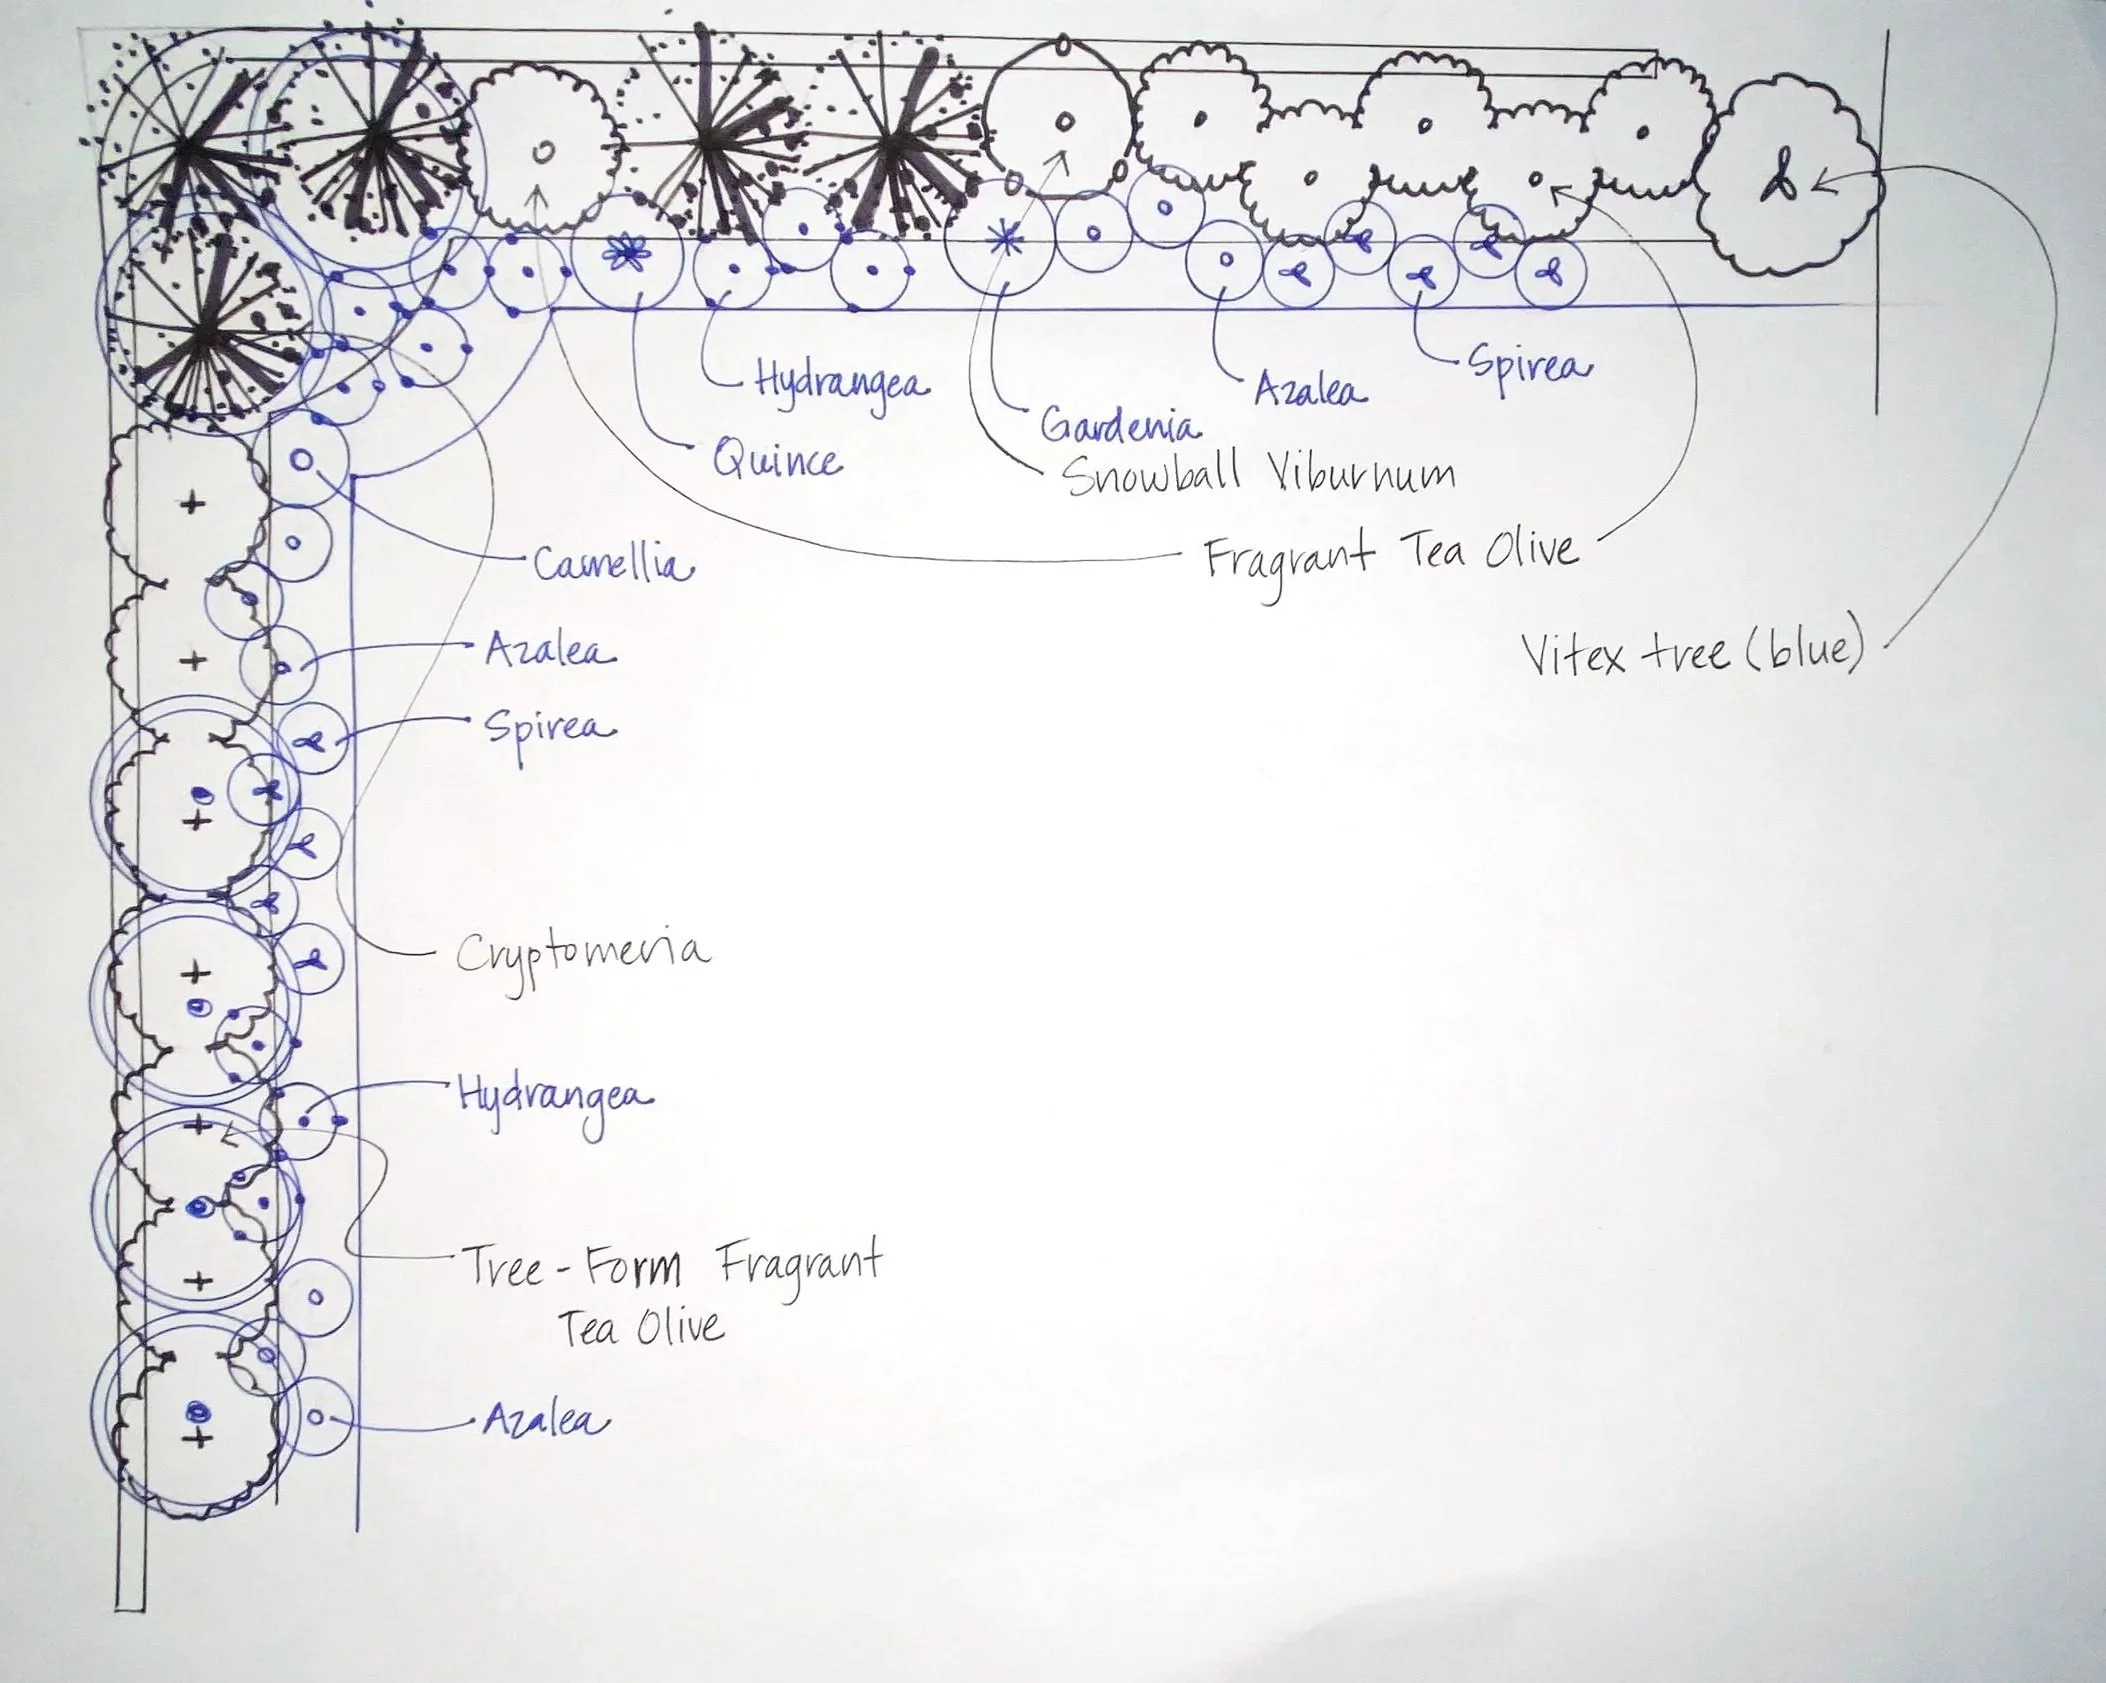 Hydrangea
Quince
Gardenia
Azalea
Spirea
Snowball Viburnum
Fragrant Tea Olive
Vitex tree (blue)
Camellia
Azalea
Spirea
Cryptomeria
Hydrangea
Tree-Form Fragrant
Tea Olive
Azalea